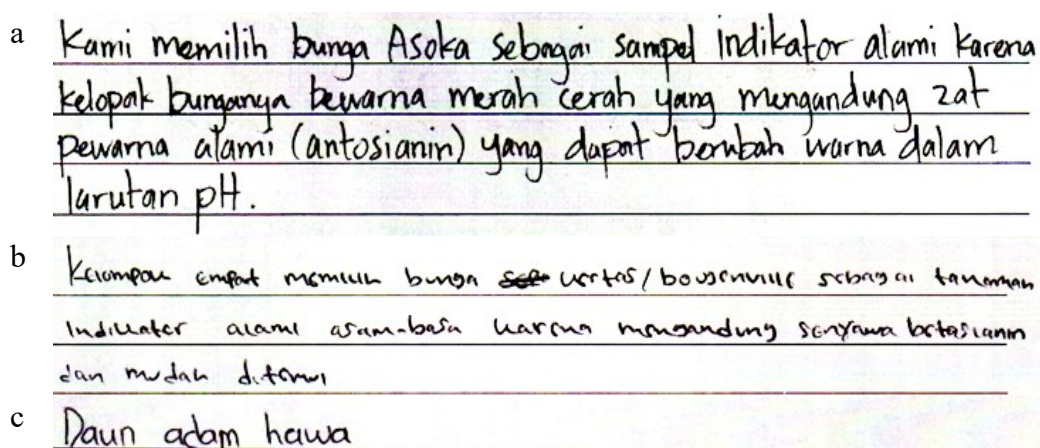 a
Kami memilih bunga Asoka sebagai sampel indikator alami karena
kelopak bunganya bewarna merah cerah yang mengandung zat
pewarna alami (antosianin) yang dapat berubah warna dalam
larutan pH.
b
Kelompok empat memilih bunga kertas/bougenville sebagai tanaman
indikator alami asam-basa karena mengandung senyawa betasianin
dan mudah ditemui
c
Daun adam hawa